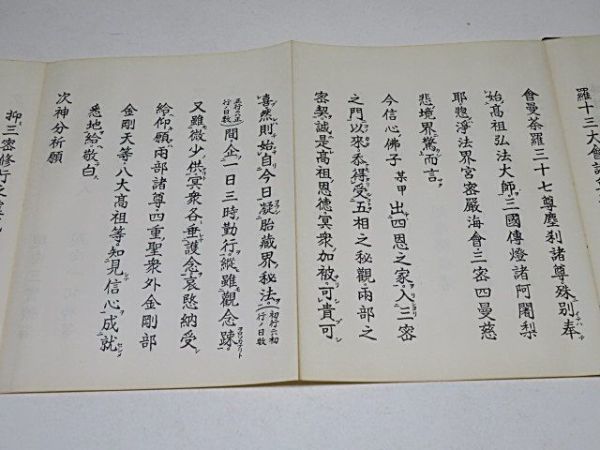 羅十三大會
會曼荼羅三十七尊塵刹諸尊殊別奉
始高祖弘法大師三國傳燈諸阿闍梨
耶惣淨法界宮密嚴海會三密四曼慈
悲境界驚而言
今信心佛子某甲出四恩之家入三密
之門以來忝得受五相之秘觀兩部之
密契誠是高祖恩德冥衆加被可貴可
喜然則始自今日凝胎藏界秘法
間企一日三時勤行縱雖觀念踈
又雖微少供冥衆各垂護念哀愍納受
給仰願兩部諸尊四重聖衆外金剛部
金剛天等八大高祖等知見信心成就
悉地給敬白
次神分祈願
抑三密修行之